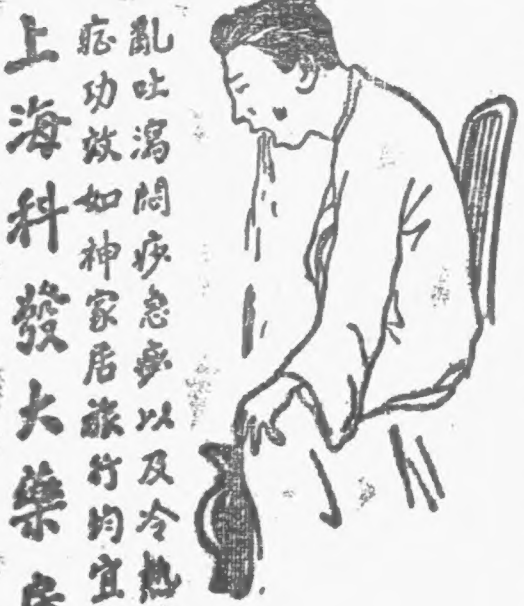 亂吐瀉悶痧急痧以及冷熱
症功效如神家居旅行均宜
上海科發大藥房